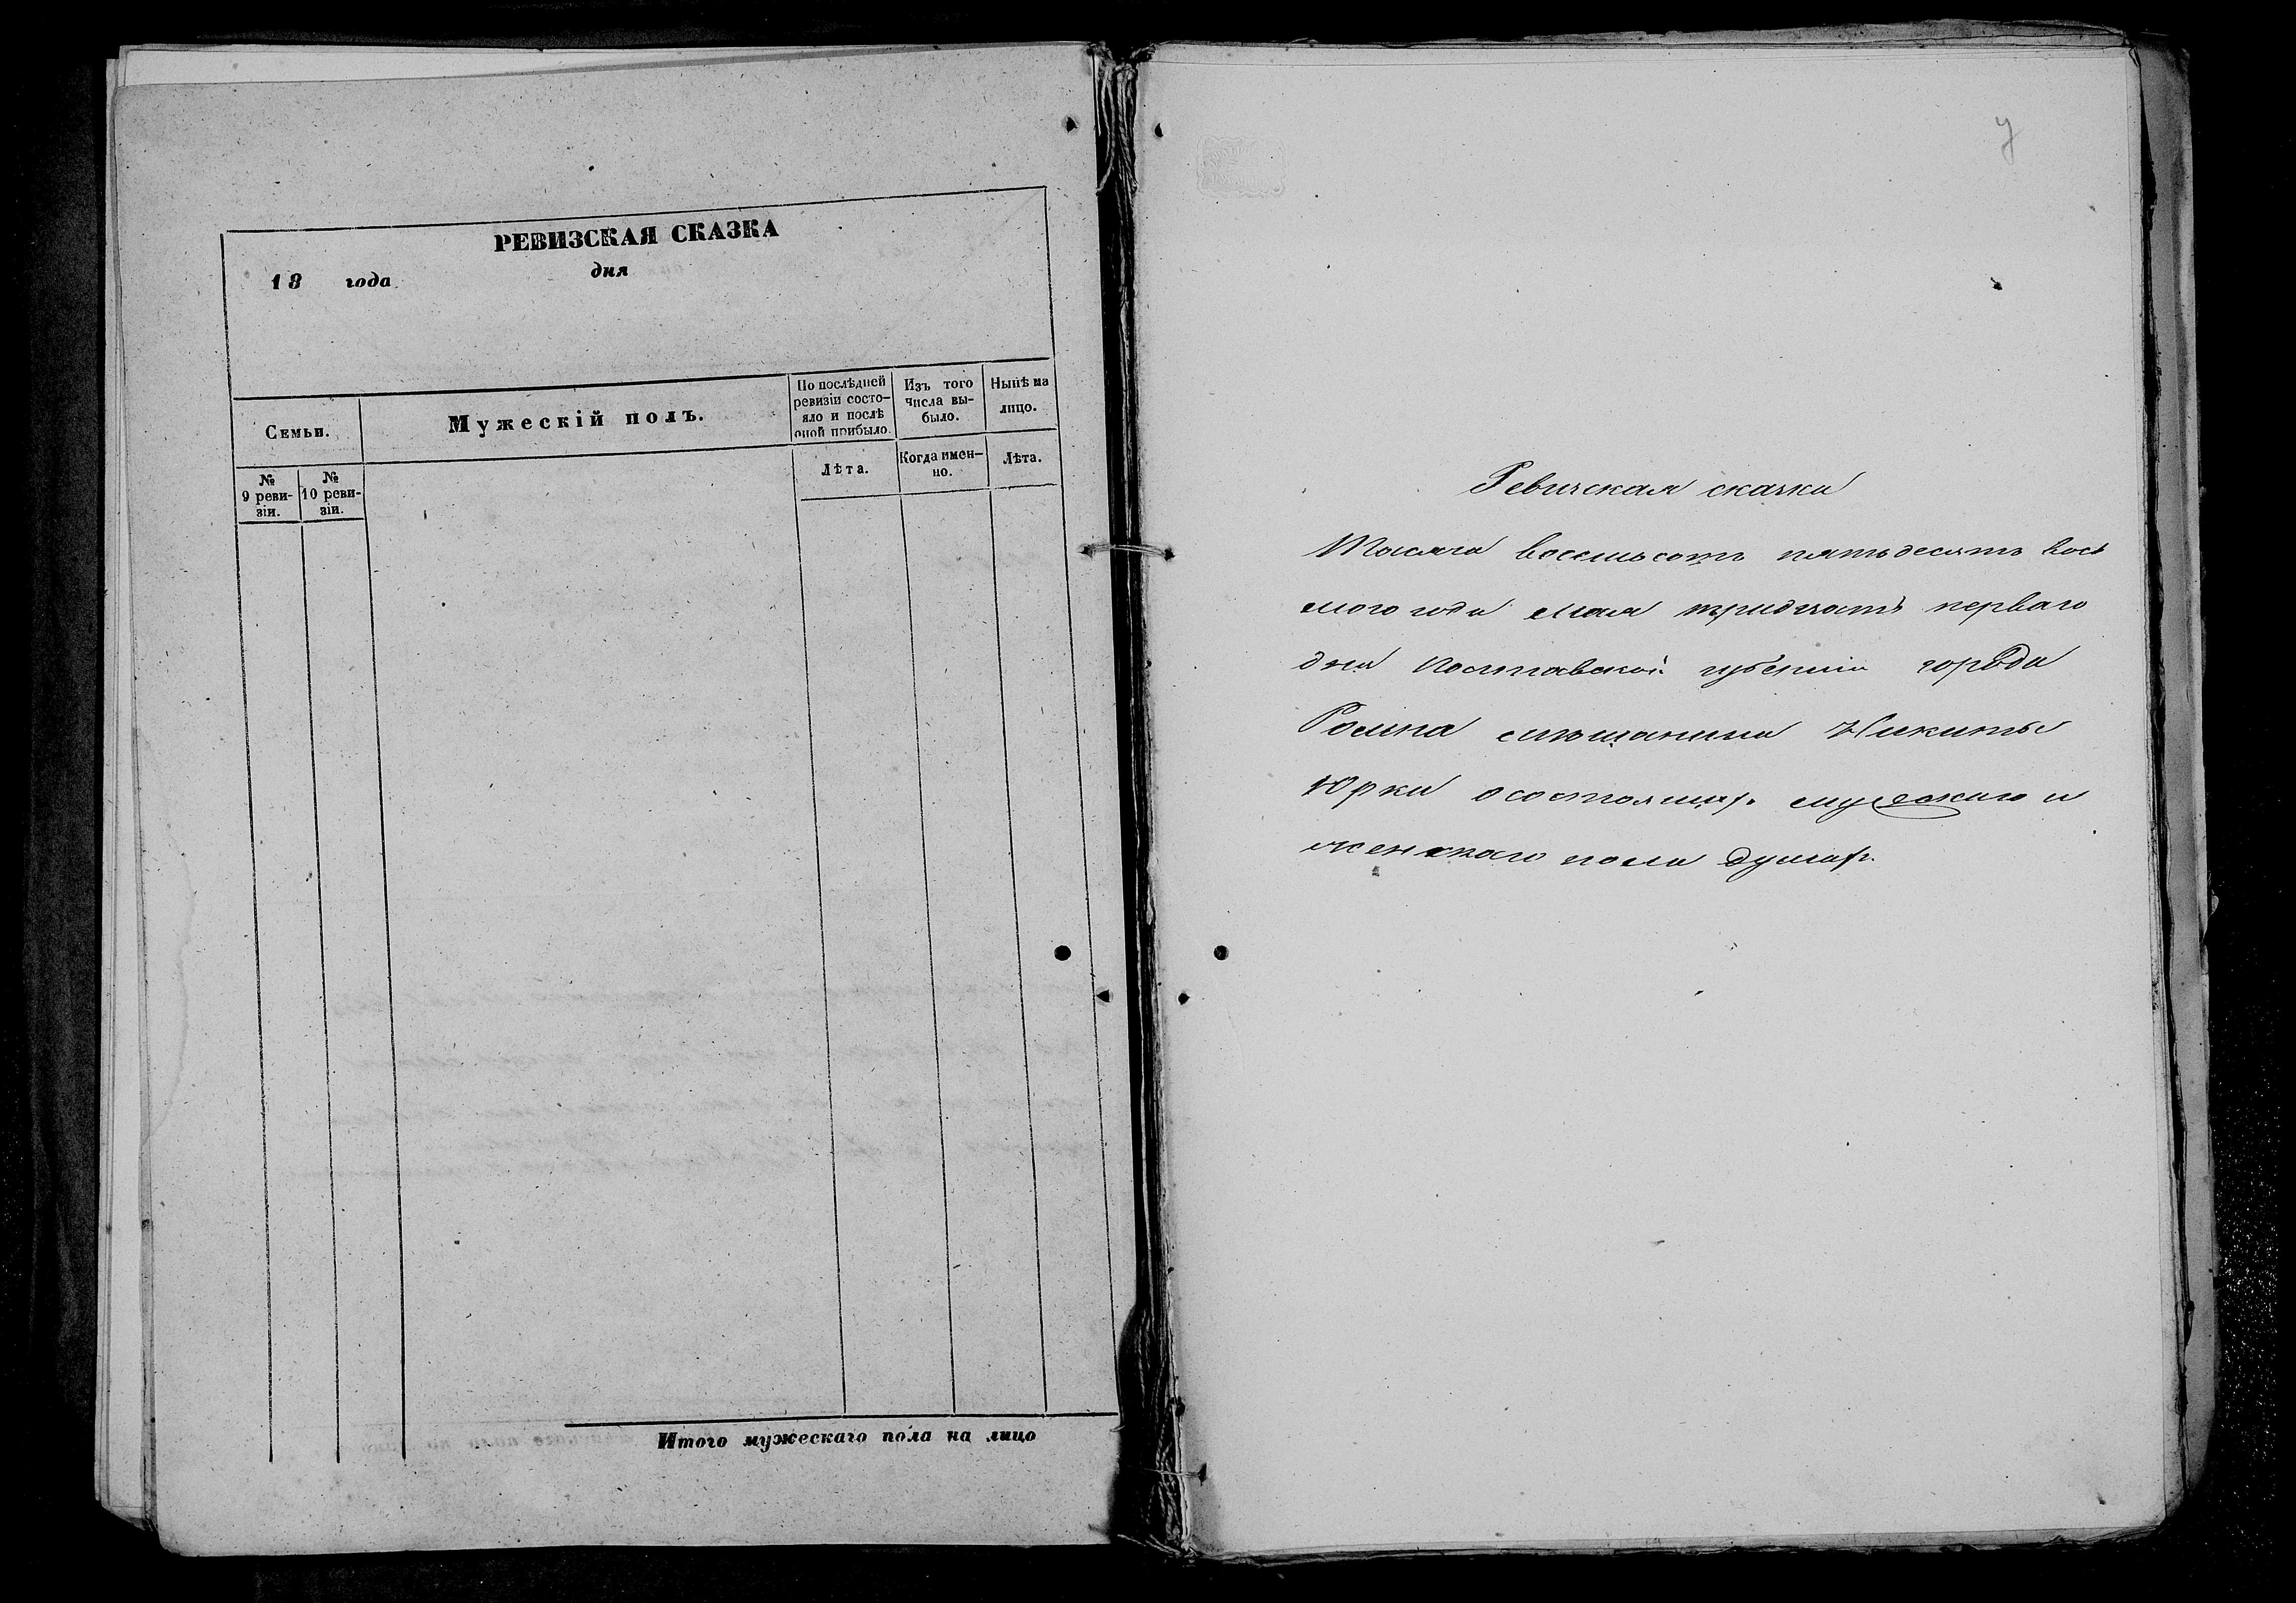 РЕВИЗСКАЯ СКАЗКА
18 года дня
Семьи.
№ 9 реви-
зіи.
№ 10 реви-
зіи.
Мужескій полъ.
По послѣдней
ревизіи состо-
яло и послѣ
оной прибыло.
Лѣта.
Изъ того
числа вы-
было.
Когда имен-
но.
Нынѣ на
лицо.
Лѣта.
Итого мужескаго пола на лицо
Ревизская сказка
Тысяча восемьсотъ пятьдесятъ вось
мого года мая тридцать перваго
дня Полтавской губерніи города
Ромна мѣщанина Никиты
Юрки о состоящихъ мужескаго и
женскаго пола душахъ.